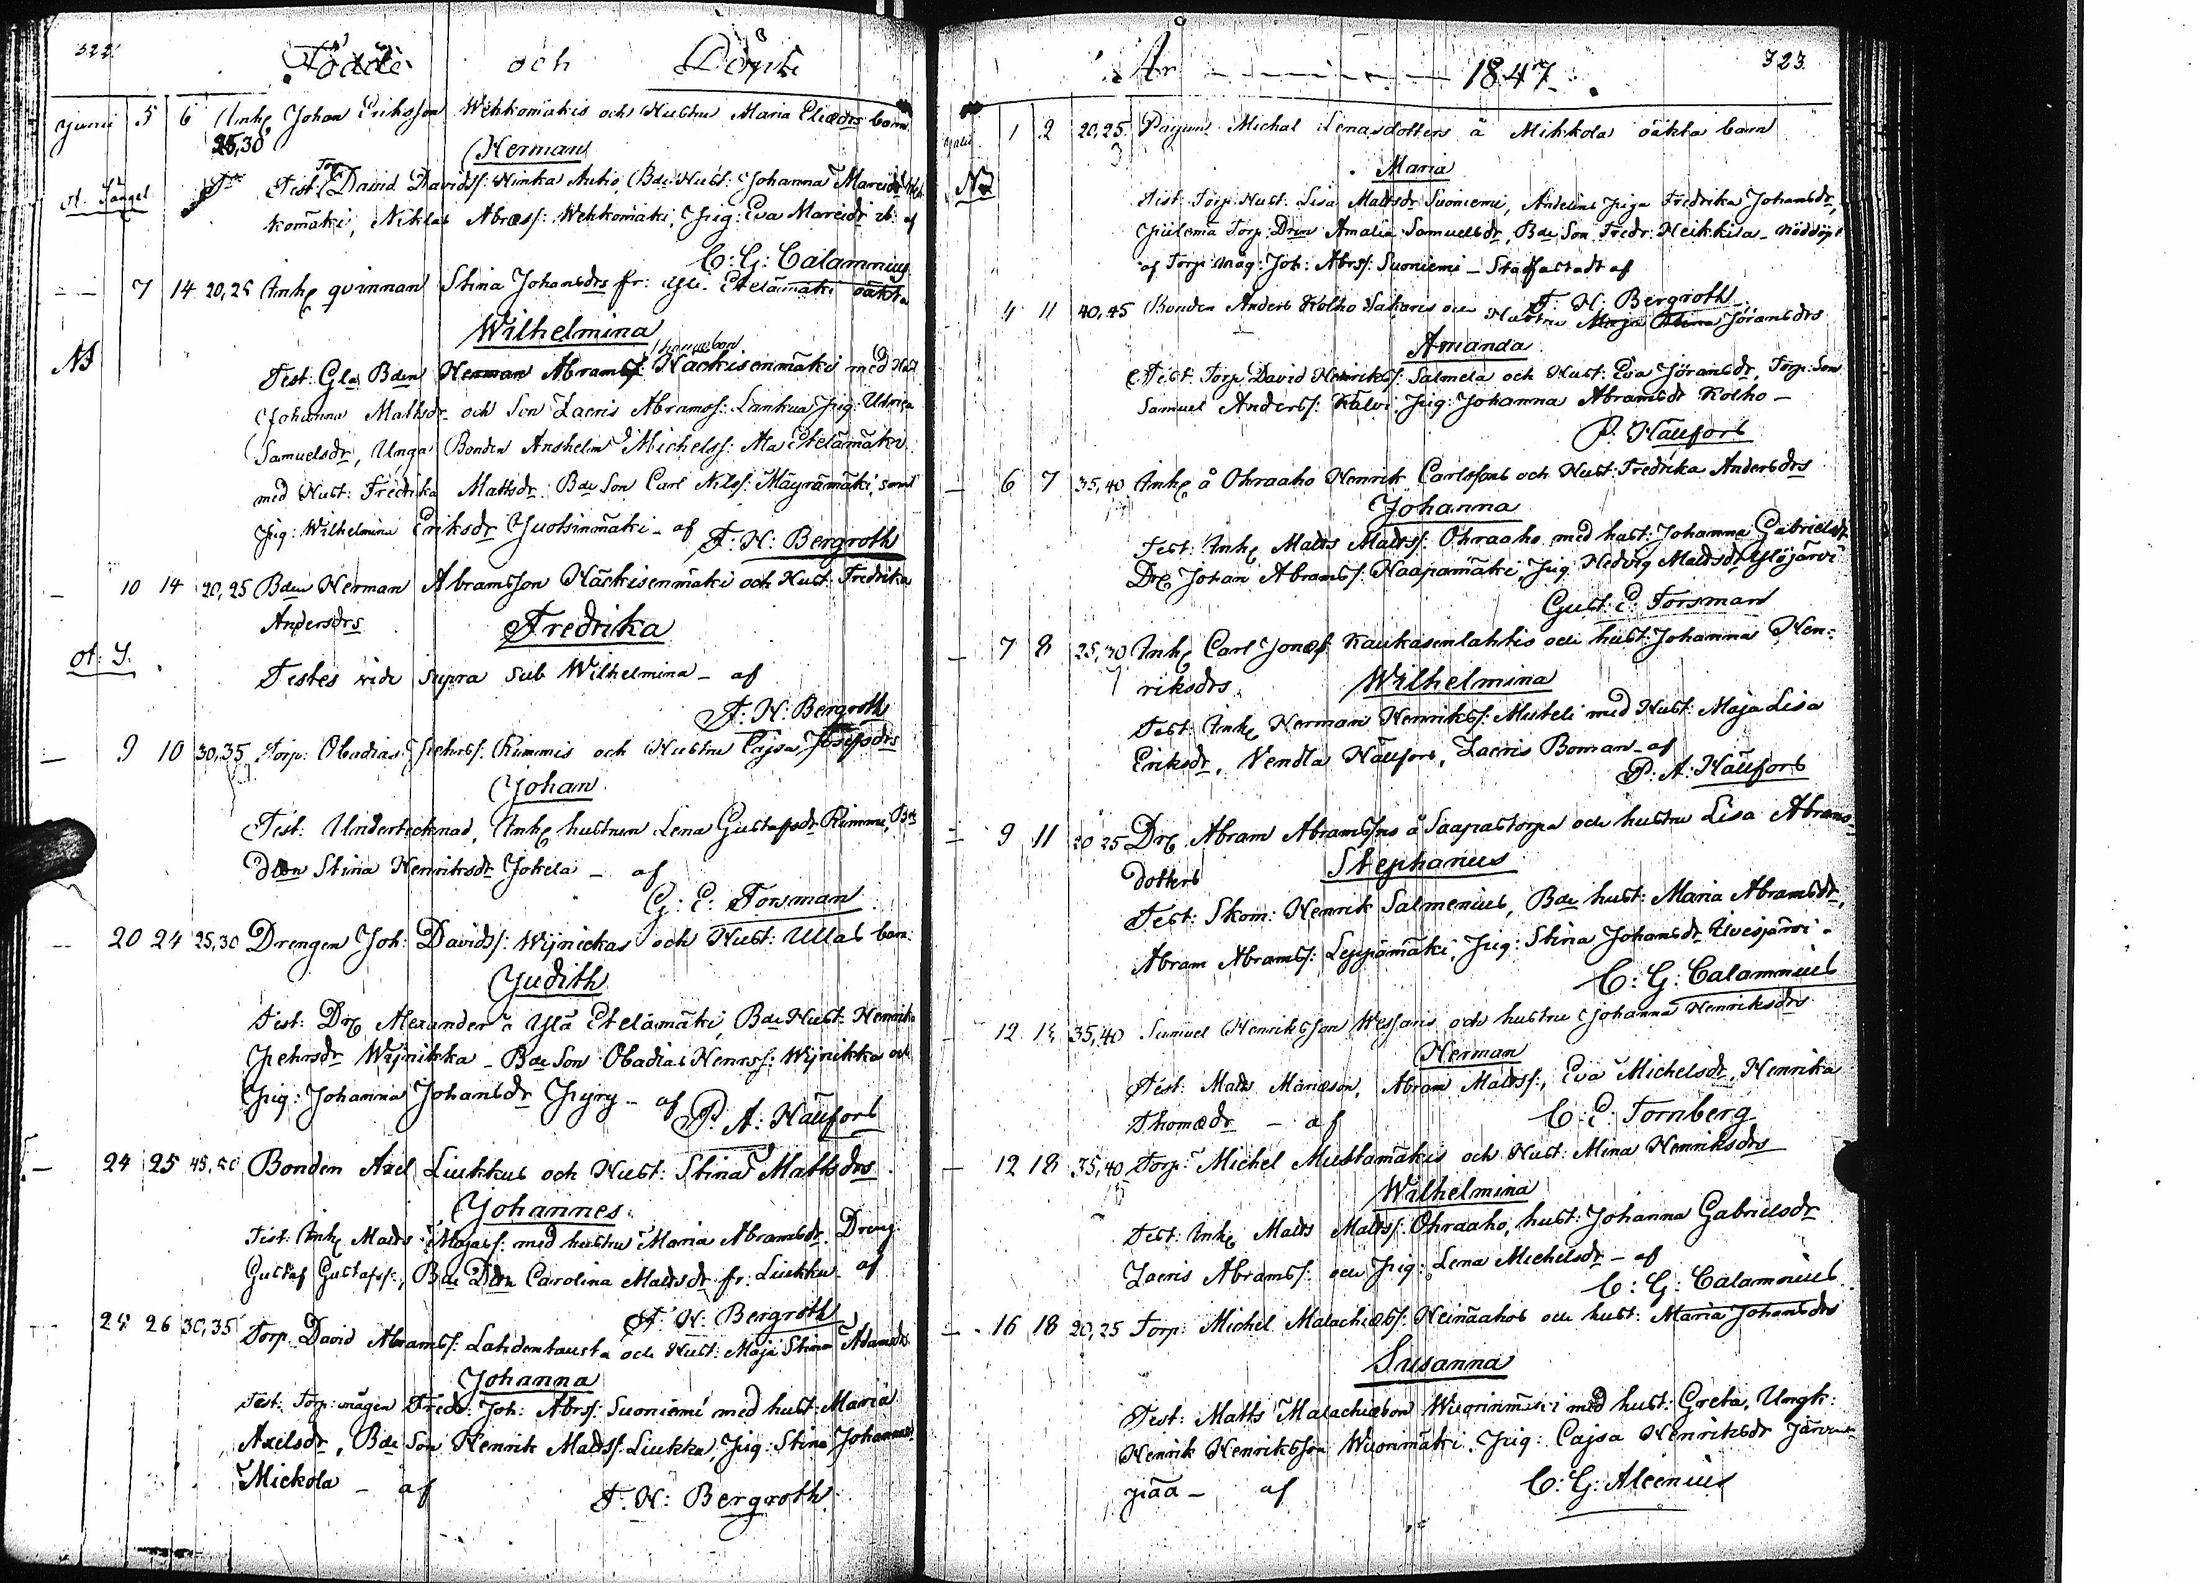 322.
Födde och Döpte
Junii 5 6 Inh. Johan Eriksson Wehkomäkis och Hustru Maria Eliædrs barn
25,30
Herman
Test: Torp. David Davidss: Himka Autio, Bde Hust: Johanna Marcidr
komäki, Niklas Abrass: Wehkomäki, Pig: Eva Marcidr ib: af
C: G: Calamnius
7 14 20,25 Inh. qvinnan Stina Johansdrs fr: Yli Etelämäki oäkta
Wilhelmina
Test: Gla Bden Herman Abramss: Hackisenmäki med Hust
Johanna Mattsdr och Son Zacris Abramss: Lankua, Pig: Ulrica
Samuelsdr, Unga Bonden Anshelm Michelss: Ala Etelämäki
med Hust: Fredrika Mattsdr Bde Son Carl Nilss: Mäyrämäki, samt
Pig: Wilhelmina Eriksdr Juotsinmäki - af F: H: Bergroth
10 14 20,25 Bden Herman Abramsson Häckisenmäki och Hust: Fredrika
Andersdrs
Fredrika
Testes vide supra sub Wilhelmina - af
F: H: Bergroth
9 10 30,35 Torp: Obadias Pehrss: Rimmis och Hustru Cajsa Josefsdrs
Johan
Test: Undertecknad, Inh. hustrun Lena Gustafsdr Rimmi, Bde
Dtrn Stina Henriksdr Jokela - af
G: E: Forsman
20 24 25,30 Drengen Joh: Davidss: Wijnickas och Hust: Ullas barn
Judith
Test: Drg Alexander å Ylä Etelämäki, Bde Hust: Henrika
Pehrsdr Wijnikka - Bde Son Obadias Henrss: Wijnikka och
Pig: Johanna Johansdr Pyry - af
P. A: Häufors
24 25 45,50 Bonden Axel Liukkus och Hust: Stina Mattsdrs
Johannes
Test: Inh. Matts Majass: med hustru Maria Abramsdr. Dreng
Gustaf Gustafss:, Bde Dtrn Carolina Mattsdr fr: Liukku af
F: H: Bergroth
24 26 30,35 Torp. David Abramss: Lahdenkausta och Hust: Maja Stina Adamsdrs
Johanna
Test: Torp: mågen Fredr: Joh: Abrss: Suoniemi med hust: Maria
Axelsdr, Bde Son Henrik Mattss: Liukku, Pig: Stina Johansdr
Mickola - af
F: H: Bergroth
År 1847.
323
1 2 20,25 Pigans Michal Lenasdotters å Mikkola oäkta barn
Maria
Test: Torp: Hust: Lisa Mattsdr Suoniemi, Pига Fredrika Johansdr,
Torp: Drn Amalia Samuelsdr, Bde Son Fredr: Heikkila - nöddöpt
af Torp: måg: Joh: Abrss: Suoniemi - Stadfästadt af
F: H: Bergroth
4 11 40,45 Bonden Anders Kolho Sakaris och Hustru Maja Stina Jöransdrs
Amanda
Test: Torp David Henrikss: Salmela och Hust: Eva Jöransdr, Torp: Son
Samuel Anderss: Kalvi Pig: Johanna Abramsdr Kolho -
P. Häufors
6 7 35,40 Inh. å Ohraaho Henrik Carlssons och Hust: Fredrika Andersdrs
Johanna
Test: Inh. Matts Mattss: Ohraaho med hust: Johanna Gabrielsdr
Drg Johan Abramss: Haapamäki, Pig Hedvig Mattsdr Ylöjärvi
Gust: E: Forsman
7 8 25,30 Inh. Carl Jonæss: Kaukasenlahtis och hust: Johanna Hen-
riksdrs
Wilhelmina
Test: Inh. Herman Henrikss: Musteli med Hust: Maja Lisa
Eriksdr, Vendla Häufors, Zacris Boman - af
P: A: Häufors
9 11 20 25 Drg Abram Abramssons å Saapastorpa och hustru Lisa Abrams-
dotters
Stephanus
Test: Skom: Henrik Salmenius, Bde hust: Maria Abramsdr,
Abram Abramss: Leppämäki, Pig: Stina Johansdr Ilvesjärvi -
C: G: Calamnius
12 35,40 Samuel Henriksson Wessaris och hustru Johanna Henriksdrs
Herman
Test: Matts Mariæson, Abram Mattss:, Eva Michelsdr, Henrika
Thomædr - af
C: E: Tornberg
12 18 35,40 Torp: Michel Mustamäkis och Hust: Mina Henriksdrs
Wilhelmina
Test: Inh. Matts Mattss: Ohraaho, hust: Johanna Gabrielsdr
Zacris Abramss: och Pig: Lena Michelsdr - af
C: G: Calamnius
16 18 20,25 Torp: Michel Malachiæss: Heinäahos och hust: Maria Johansdrs
Susanna
Test: Matts Malachiæson Wuorinmäki med hust: Greta, Ungk:
Henrik Henriksson Wuorinmäki, Pig: Cajsa Henriksdr Järven-
pää - af
C: G: Alcenius